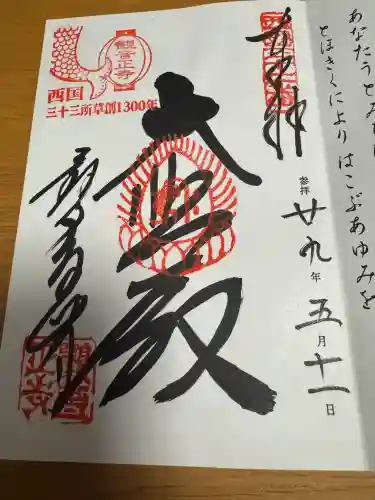 あなたうとみち
とほきくにより はこぶあゆみを
奉拝
参拝 廿九年 五月十一日
大悲殿
観音正寺
観音正寺
西国
三十三所草創1300年
観音正寺